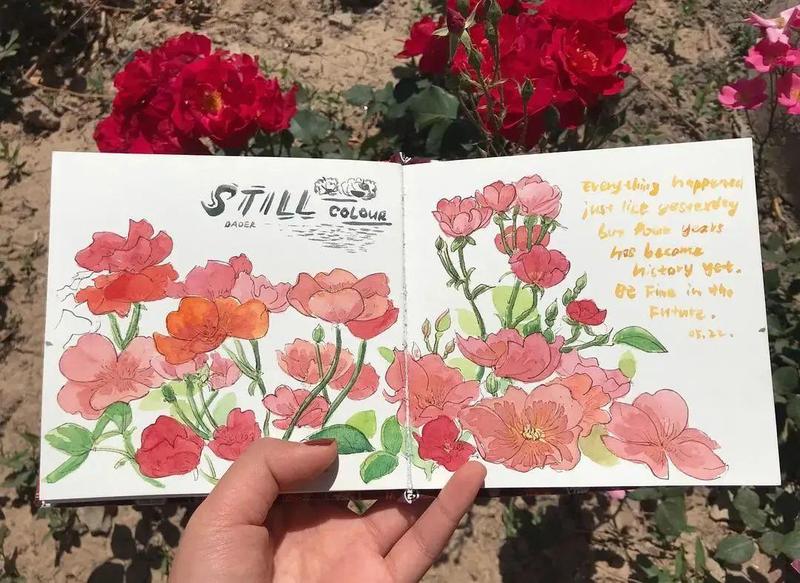 STILL
COLOUR
DADER
Everything happened
just like yesterday
but four years
has become
history yet.
Be Fine in the
Future.
05.22.